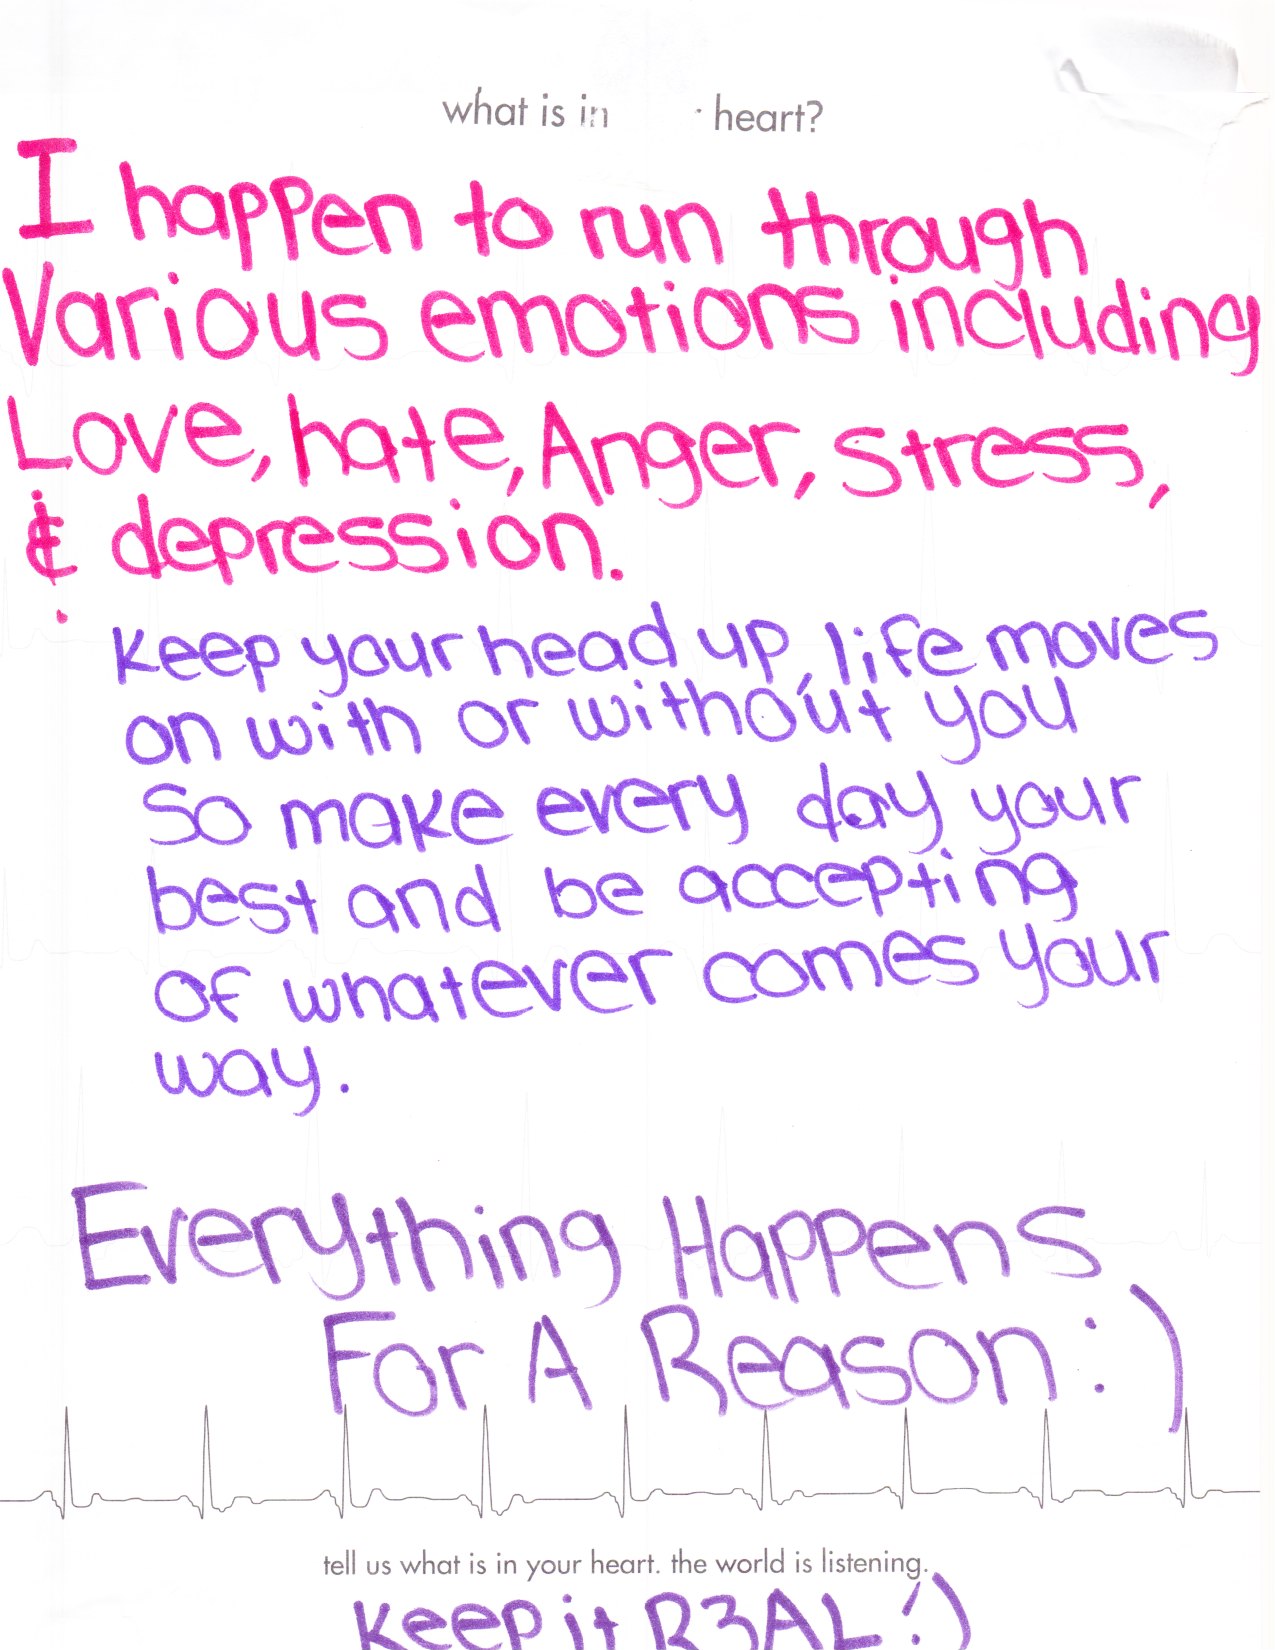 what is in heart?
I happen to run through
Various emotions including
Love, hate, Anger, stress,
& depression.
keep your head up, life moves
on with or without you
So make every day your
best and be accepting
of whatever comes your
way.
Everything Happens
For A Reason :)
tell us what is in your heart. the world is listening.
keep it R3AL :)